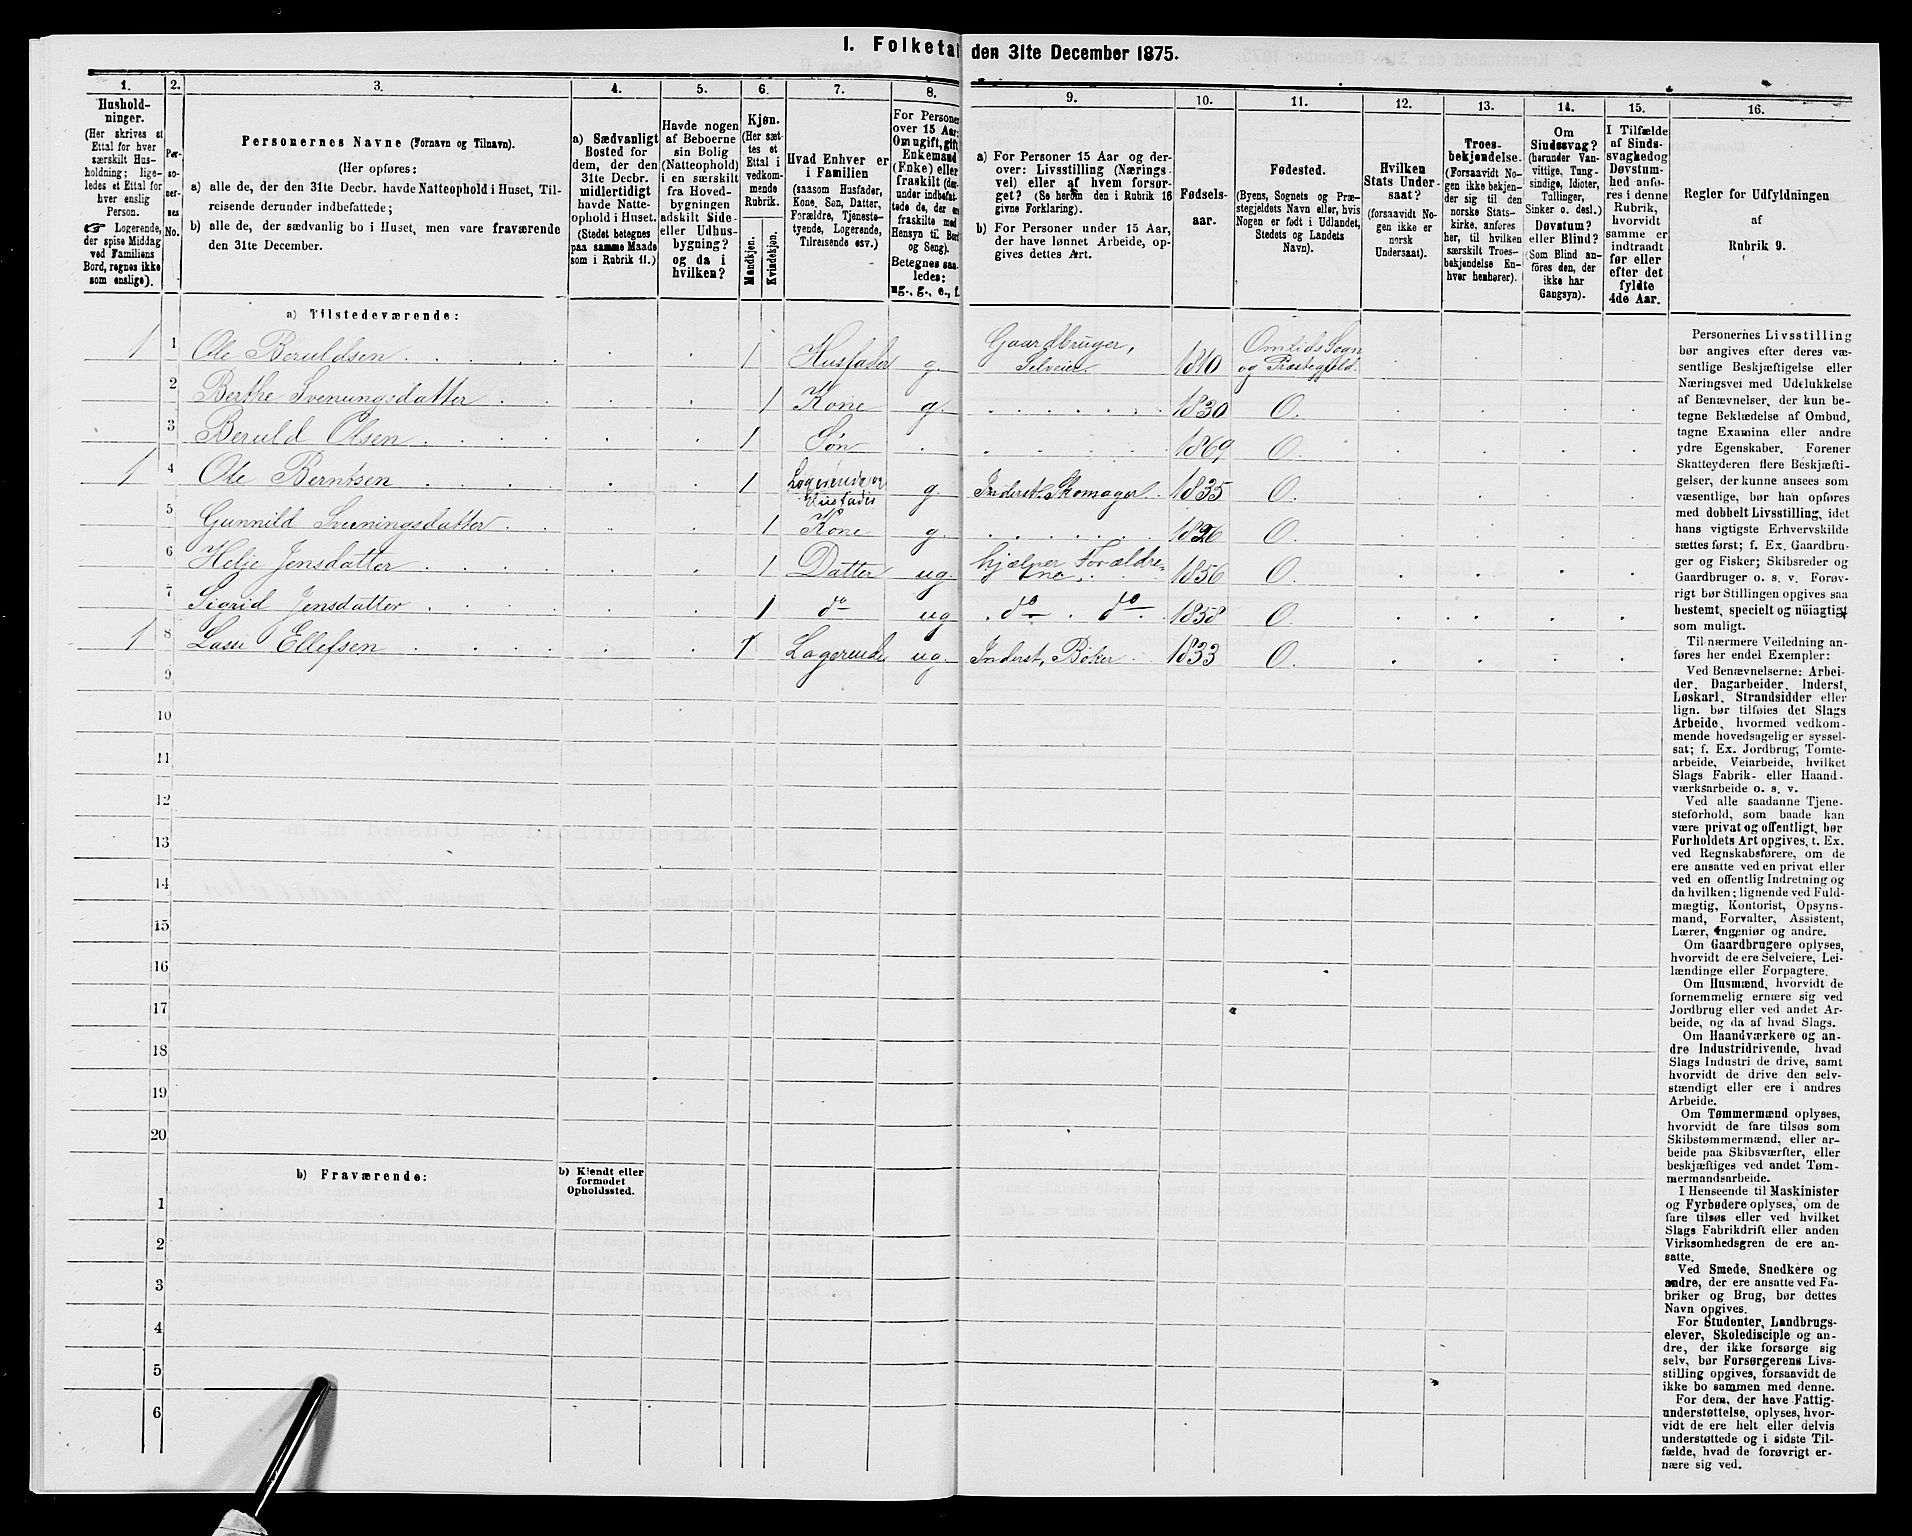 I. Folketal den 31te December 1875.
1.
Hushold-
ninger.
(Her skrives et
Ettal for hver
særskilt Hus-
holdning; lige-
ledes et Ettal for
hver enslig
Person.
☞ Logerende,
der spise Middag
ved Familiens
Bord, regnes ikke
som enslige).
2.
Per-
so-
ner-
nes
No.
3.
Personernes Navne (Fornavn og Tilnavn).
(Her opføres:
a) alle de, der den 31te Decbr. havde Natteophold i Huset, Til-
reisende derunder indbefattede;
b) alle de, der sædvanlig bo i Huset, men vare fraværende
den 31te December.
4.
a) Sædvanligt
Bosted for
dem, der den
31te Decbr.
midlertidigt
havde Natte-
ophold i Huset.
(Stedet betegnes
paa samme Maade
som i Rubrik 11.)
5.
Havde nogen
af Beboerne
sin Bolig
(Natteophold)
i en særskilt
fra Hoved-
bygningen
adskilt Side-
eller Udhus-
bygning?
og da i
hvilken?
6.
Kjøn.
(Her sæt-
tes et
Ettal i
vedkom-
mende
Rubrik.
Mandkjøn.
Kvindekjøn.
7.
Hvad Enhver er
i Familien
(saasom Husfader,
Kone, Søn, Datter,
Forældre, Tjeneste-
tyende, Logerende,
Tilreisende osv.)
8.
For Personer
over 15 Aar:
Om ugift, gift,
Enkemand
(Enke) eller
fraskilt (der-
under indbefat-
tede de, der ere
fraskilte med
Hensyn til Bord
og Seng).
Betegnes saa-
ledes:
ug., g., e., f.
9.
a) For Personer 15 Aar og der-
over: Livsstilling (Nærings-
vei) eller af hvem forsør-
get? (Se herom den i Rubrik 16
givne Forklaring).
b) For Personer under 15 Aar,
der have lønnet Arbeide, op-
gives dettes Art.
10.
Fødsels-
aar.
11.
Fødested.
(Byens, Sognets og Præ-
stegjeldets Navn eller, hvis
Nogen er født i Udlandet,
Stedets og Landets
Navn).
12.
Hvilken
Stats Under-
saat?
(forsaavidt No-
gen ikke er
norsk
Undersaat).
13.
Troes-
bekjendelse.
(Forsaavidt No-
gen ikke bekjen-
der sig til den
norske Stats-
kirke, anføres
her, til hvilken
særskilt Troes-
bekjendelse En-
hver henhører).
14.
Om
Sindssvag?
(herunder Van-
vittige, Tung-
sindige, Idioter,
Tullinger,
Sinker o. desl.)
Døvstum?
eller Blind?
(Som Blind an-
føres den, der
ikke har
Gangsyn).
15.
I Tilfælde
af Sinds-
svaghed og
Døvstum-
hed anfø-
res i denne
Rubrik,
hvorvidt
samme er
indtraadt
før eller
efter det
fyldte
4de Aar.
16.
Regler for Udfyldningen
af
Rubrik 9.
a) Tilstedeværende:
1 1 Ole Beruldsen 1 Husfader g. Gaardbruger, Selveier. 1810 Omlids Sogn og Præstegjeld.
2 Berthe Svenungsdatter 1 Kone g. 1830 O.
3 Beruld Olsen 1 Søn 1869 O.
1 4 Ole Berntsen 1 Logerende og Husfader g. Inderst, Skomager. 1835 O.
5 Gunnild Svenningsdatter 1 Kone g. 1826 O.
6 Helje Jensdatter 1 Datter ug. hjælper Forældrene. 1856 O.
7 Sigrid Jensdatter 1 do ug do do 1858 O.
1 8 Lasse Ellefsen 1 Logerende ug. Inderst, Bøker 1833 O.
9
10
11
12
13
14
15
16
17
18
19
20
b) Fraværende:
b) Kjendt eller
formodet
Opholdssted.
1
2
3
4
5
6
Personernes Livsstilling
bør angives efter deres væ-
sentlige Beskjæftigelse eller
Næringsvei med Udelukkelse
af Benævnelser, der kun be-
tegne Beklædelse af Ombud,
tagne Examina eller andre
ydre Egenskaber. Forener
Skatteyderen flere Beskjæfti-
gelser, der kunne ansees som
væsentlige, bør han opføres
med dobbelt Livsstilling, idet
hans vigtigste Erhvervskilde
sættes først; f. Ex. Gaardbru-
ger og Fisker; Skibsreder og
Gaardbruger o. s. v. Forøv-
rigt bør Stillingen opgives saa
bestemt, specielt og nöiagtigt
som muligt.
Til nærmere Veiledning an-
føres her endel Exempler:
Ved Benævnelserne: Arbei-
der, Dagarbeider, Inderst,
Løskarl, Strandsidder eller
lign. bør tilføies det Slags
Arbeide, hvormed vedkom-
mende hovedsagelig er syssel-
sat; f. Ex. Jordbrug, Tomte-
arbeide, Veiarbeide, hvilket
Slags Fabrik- eller Haand-
værksarbeide o. s. v.
Ved alle saadanne Tjene-
steforhold, som baade kan
være privat og offentligt, bør
Forholdets Art opgives, t. Ex.
ved Regnskabsførere, om de
ere ansatte ved en privat eller
ved en offentlig Indretning og
da hvilken; lignende ved Fuld-
mægtig, Kontorist, Opsyns-
mand, Forvalter, Assistent,
Lærer, Ingeniør og andre.
Om Gaardbrugere oplyses,
hvorvidt de ere Selveiere, Lei-
lændinge eller Forpagtere.
Om Husmænd, hvorvidt de
fornemmelig ernære sig ved
Jordbrug eller ved andet Ar-
beide, og da af hvad Slags.
Om Haandværkere og an-
dre Industridrivende, hvad
Slags Industri de drive, samt
hvorvidt de drive den selv-
stændigt eller ere i andres
Arbeide.
Om Tømmermænd oplyses,
hvorvidt de fare tilsøs som
Skibstømmermænd, eller ar-
beide paa Skibsværfter, eller
beskjæftiges ved andet Tøm-
mermandsarbeide.
I Henseende til Maskinister
og Fyrbødere oplyses, om de
fare tilsøs eller ved hvilket
Slags Fabrikdrift eller anden
Virksomhedsgren de ere an-
satte.
Ved Smede, Snedkere og
andre, der ere ansatte ved Fa-
briker og Brug, bør dettes
Navn opgives.
For Studenter, Landbrugs-
elever, Skoledisciple og an-
dre, der ikke forsørge sig
selv, bør Forsørgerens Livs-
stilling opgives, forsaavidt de
ikke bo sammen med denne.
For dem, der have Fattig-
understøttelse, oplyses, hvor-
vidt de ere helt eller delvis
understøttede og i sidste Til-
fælde, hvad de forøvrigt er-
nære sig ved.